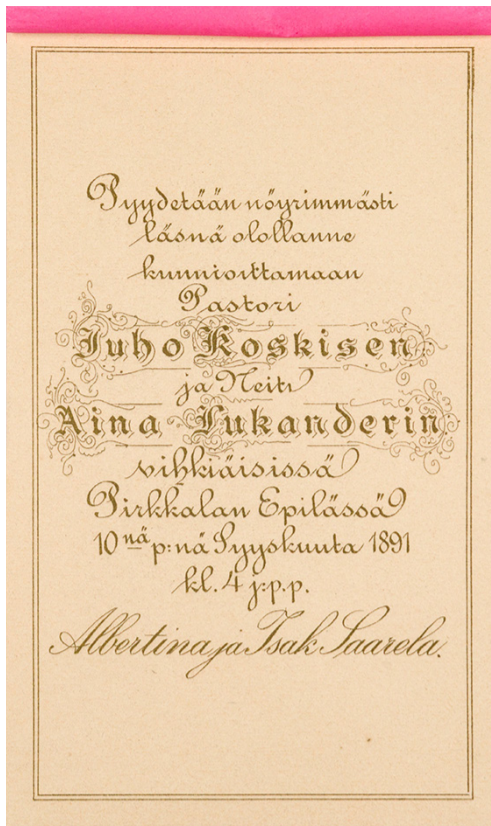 Pyydetään nöyrimmästi
läsnä olollanne
kunnioittamaan
Pastori
Juho Koskisen
ja Neiti
Aina Lukanderin
vihkiäisissä
Pirkkalan Epilässä
10 nä p:nä Syyskuuta 1891
kl. 4 j.p.p.
Albertina ja Isak Saarela.